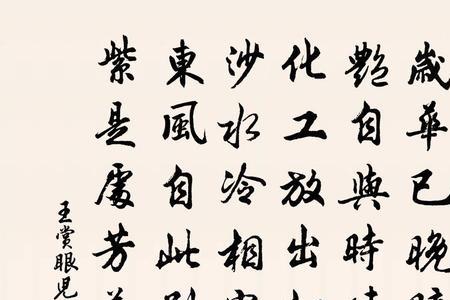 歲華已晚
艷自與時
化工放出
沙水冷相
東風自此
紫是處芳
王賞眼兒